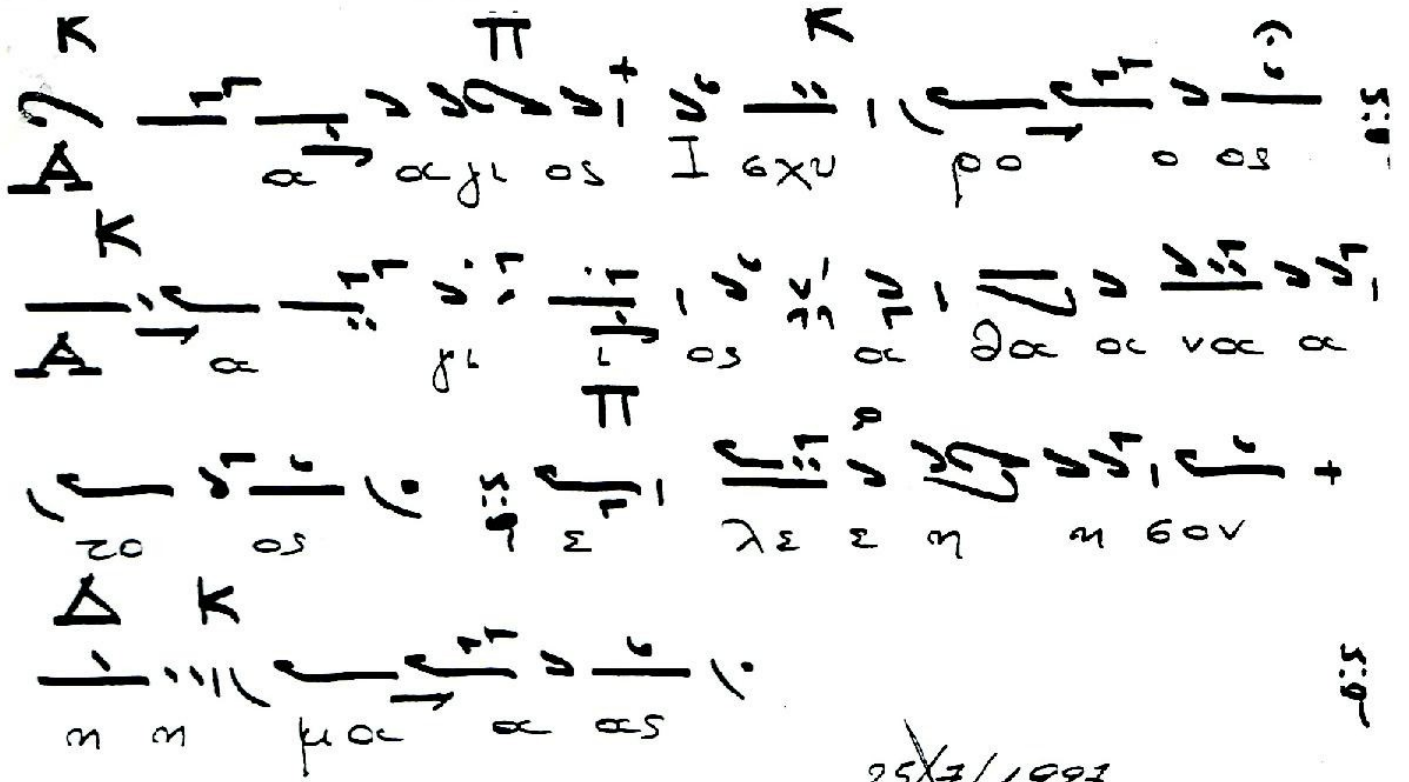 Κ Π Κ
Α α αγι ος Ι σχυ ρο ο ος
Κ
Α α γι ι ος α θα α να α
Π
το ος ε λε ε η η σον
Δ Κ
η η μα α ας